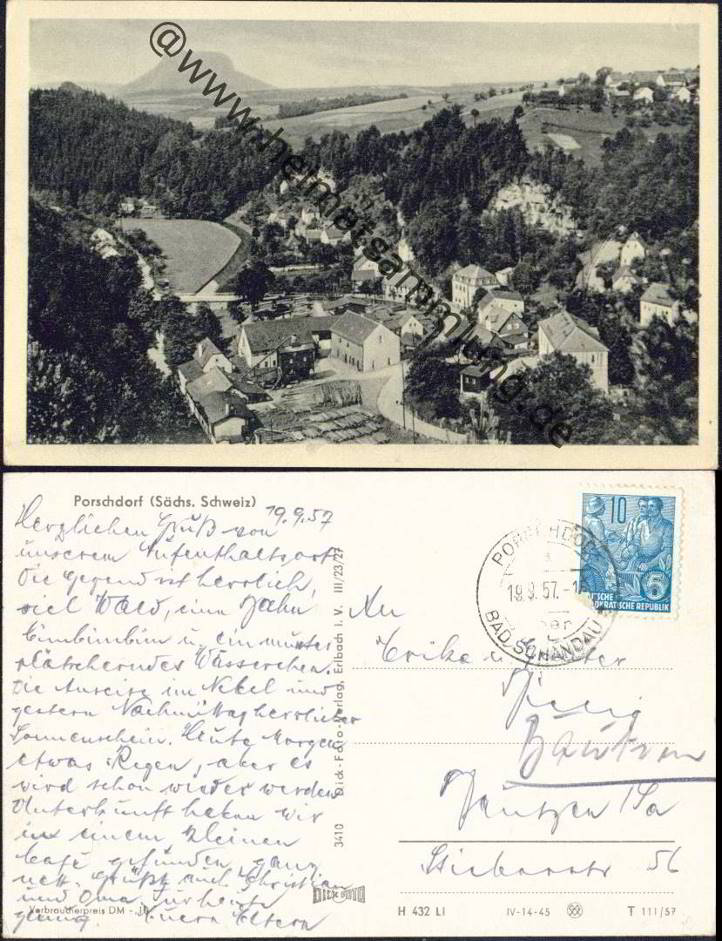 @www.heimatsammlung.de
Porschdorf (Sächs. Schweiz)
19.9.57
Herzlichen Gruß von
unserem Aufenthaltsort
Die Gegend ist herrlich,
viel Wald, eine Bahn
Bimbimbim u. ein munter
plätscherndes Wässerchen.
Die Anreise im Nebel und
gestern Nachmittag herrlicher
Sonnenschein. Heute Morgen
etwas Regen, aber es
wird schon wieder werden
Unterkunft haben wir
in einem kleinen
Café gefunden, ganz
nett. Grüßt auch Christian
und Oma
Eure Eltern
Verbraucherpreis DM -
3410 Dick-Foto-Verlag, Erlbach i. V. III/23/27
DICK FOTO
PORSCHDORF
19.9.57
BAD SCHANDAU
10
5
DEUTSCHE
DEMOKRATISCHE REPUBLIK
An
Erika u.
Bautzen
Bautzen /Sa
56
H 432 LI
IV-14-45
T 111/57